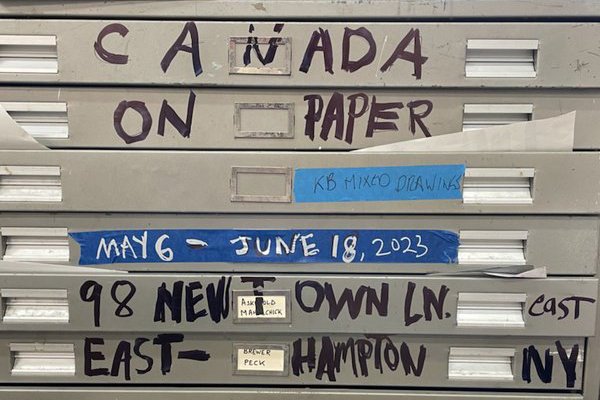 CANADA
ON PAPER
KB MIXED DRAWINGS
MAY 6 - JUNE 18, 2023
98 NEWTOWN LN. east
EAST-HAMPTON NY
BREWER
PECK